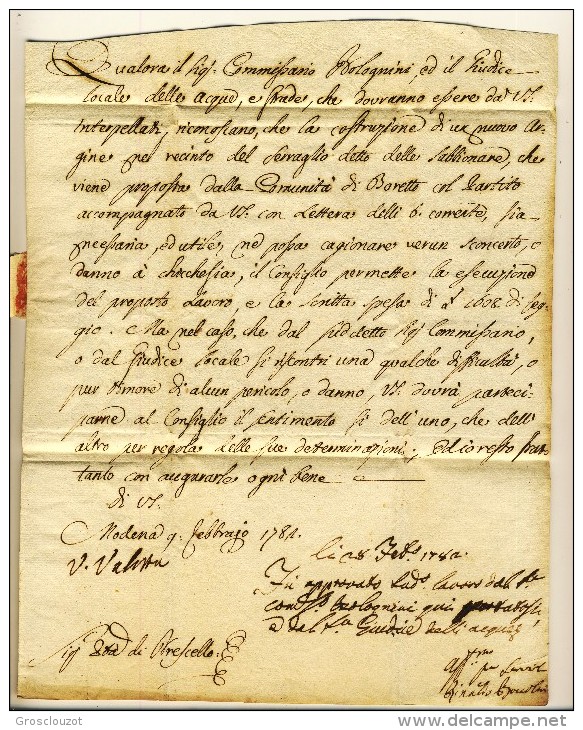 Qualora il Sig.r Commissario Bolognini, ed il Giudice
locale delle Acque, e strade, che dovranno essere da V.S.
interpellati, riconoscano, che la costruzione di un nuovo Ar-
gine nel recinto del serraglio detto delle Sabbionare, che
viene proposta dalla Comunità di Boretto col Partito
accompagnato da V.S. con Lettera delli 6. corrente, sia
necessaria, ed utile, nè possa cagionare verun sconcerto, o
danno à chicchesia, il Consiglio permette la esecuzione
del proposto Lavoro, e la scritta spesa di 1608. di Reg-
gio. Ma nel caso, che dal suddetto Sig.r Commissario,
o dal Giudice Locale si riscontri una qualche difficultà, o
pur timore di alcun pericolo, o danno, V.S. dovrà parteci-
parne al Consiglio il sentimento sì dell'uno, che dell'
altro per regola delle sue determinazioni; Ed io resto frat-
tanto con augurarle ogni bene
di V.S.
Modena 9. Febbrajo 1782.
li 28 Feb.o 1782
Fu approvato
Bolognini qui
e dal Giudice dell'acque
Sig.r di Brescello
Grosclouzot
www.delcampe.net